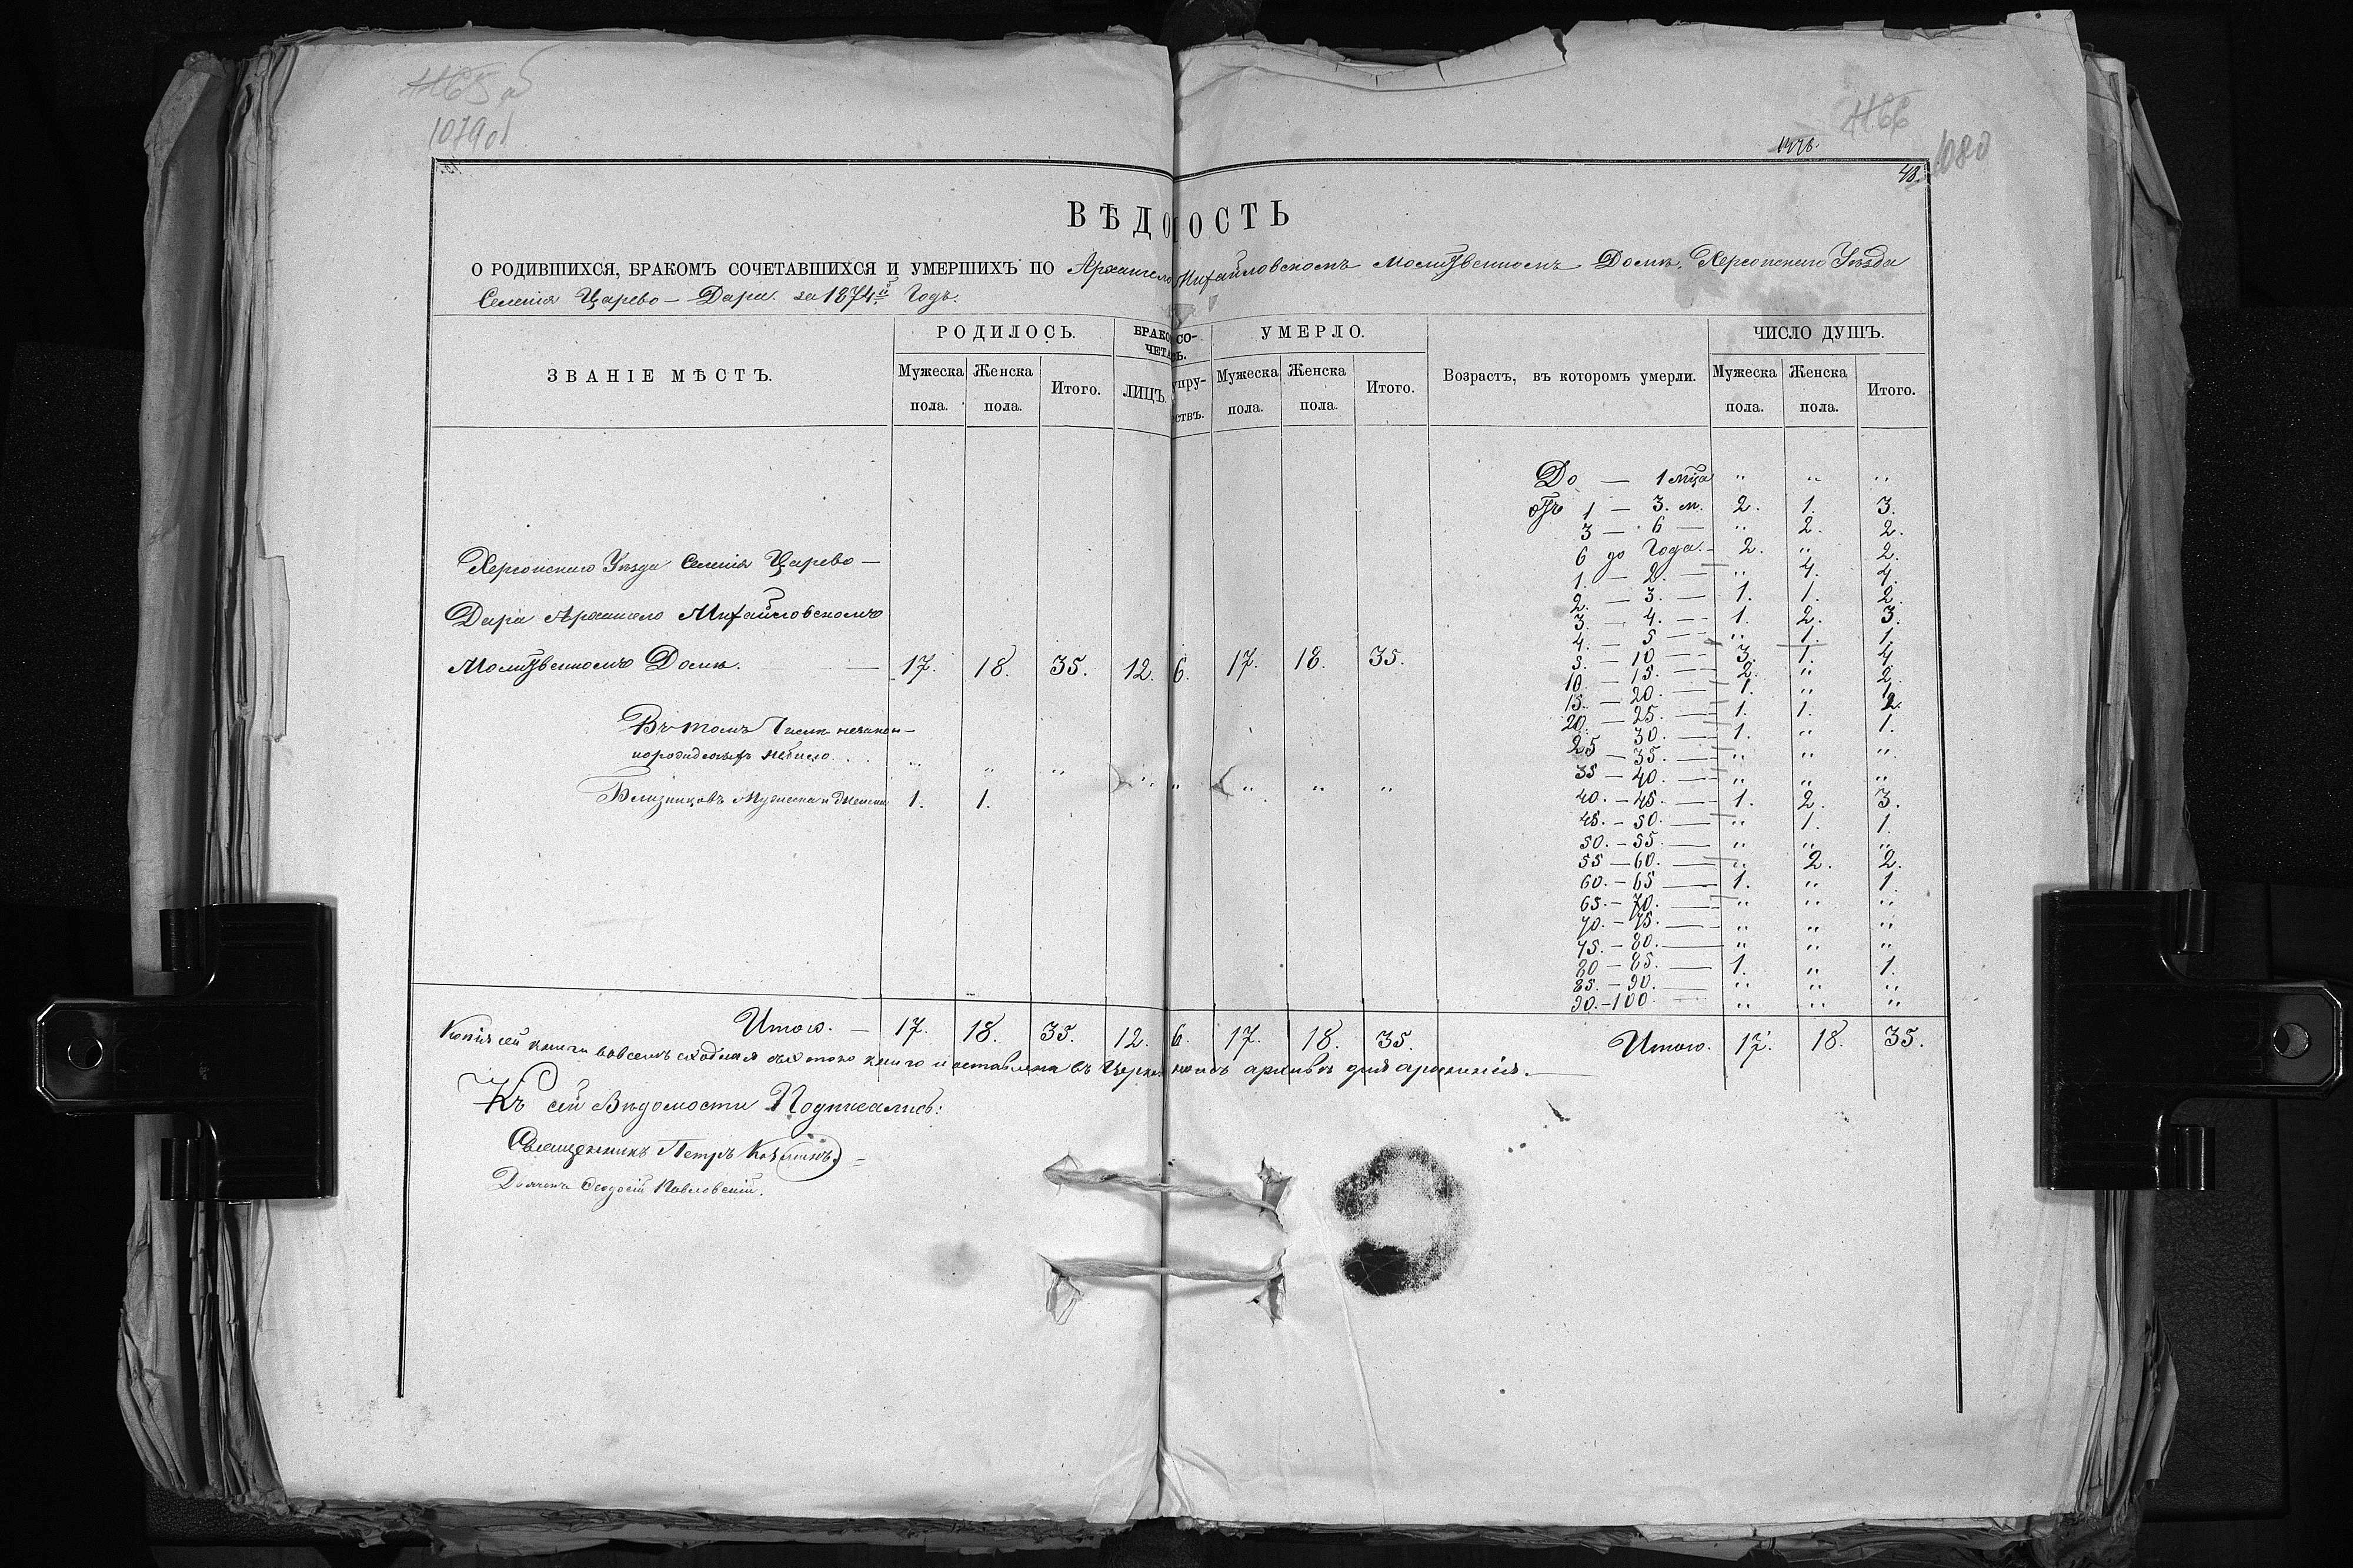 1079об
1466
1080
48.
ВѢДОМОСТЬ
О РОДИВШИХСЯ, БРАКОМЪ СОЧЕТАВШИХСЯ И УМЕРШИХЪ ПО Архангело Михайловскомъ Молитвенномъ Домѣ, Херсонскаго Уѣзда
Селенія Царево-Дара за 1874й Годъ.
ЗВАНІЕ МѢСТЪ. РОДИЛОСЬ. БРАКОСО- УМЕРЛО. Возрастъ, въ которомъ умерли. ЧИСЛО ДУШЪ.
ЧЕТАВ
Мужеска Женска Итого. ЛИЦЪ. упру- Мужеска Женска Итого. Мужеска Женска Итого.
пола. пола. ствъ. пола. пола. пола. пола.
До — 1 мца " " "
Отъ 1 — 3. м. 2. 1. 3.
3 — 6 — " 2. 2.
6 до Года. — 2. " 2.
1. — 2. — " 4. 4.
2. — 3. — 1. 1. 2.
3. — 4. — 1. 2. 3.
4. — 5 — " 1. 1.
5. — 10 — 3. 1. 4
10 — 15. — 2. " 2.
15. — 20. — 1. " 1.
20. — 25. — 1. 1. 2.
25 — 30. — 1. " 1.
— 35. — " " "
35 — 40. — " " "
40. — 45. — 1. 2. 3.
45. — 50. — " 1. 1.
50. — 55. — " " "
55 — 60. — " 2. 2.
60. — 65 — 1. " 1.
65. — 70. — " " "
70. — 75. — " " "
75. — 80. — " " "
80 — 85. — 1. " 1.
85. — 90. — " " "
90. — 100. — " " "
Херсонскаго Уѣзда Селенія Царево —
Дара Архангело Михайловскомъ
Молитвенномъ Домѣ. — 17. 18. 35. 12. 6. 17. 18. 35.
Въ томъ Числѣ незакон-
норожденныхъ небыло. . . " " " " " " " "
Близнецовъ Мужеска и Женска 1. 1.
Итого. — 17. 18. 35. 12. 6. 17. 18. 35. Итого. 17. 18. 35.
Копія сей книги вовсемъ сходная съ тою книгою и оставлена въ Церковномъ архивѣ для храненія. —
Къ сей Вѣдомости Подписались:
Священникъ Петръ
Дьячокъ Ѳеодосій Павловскій.